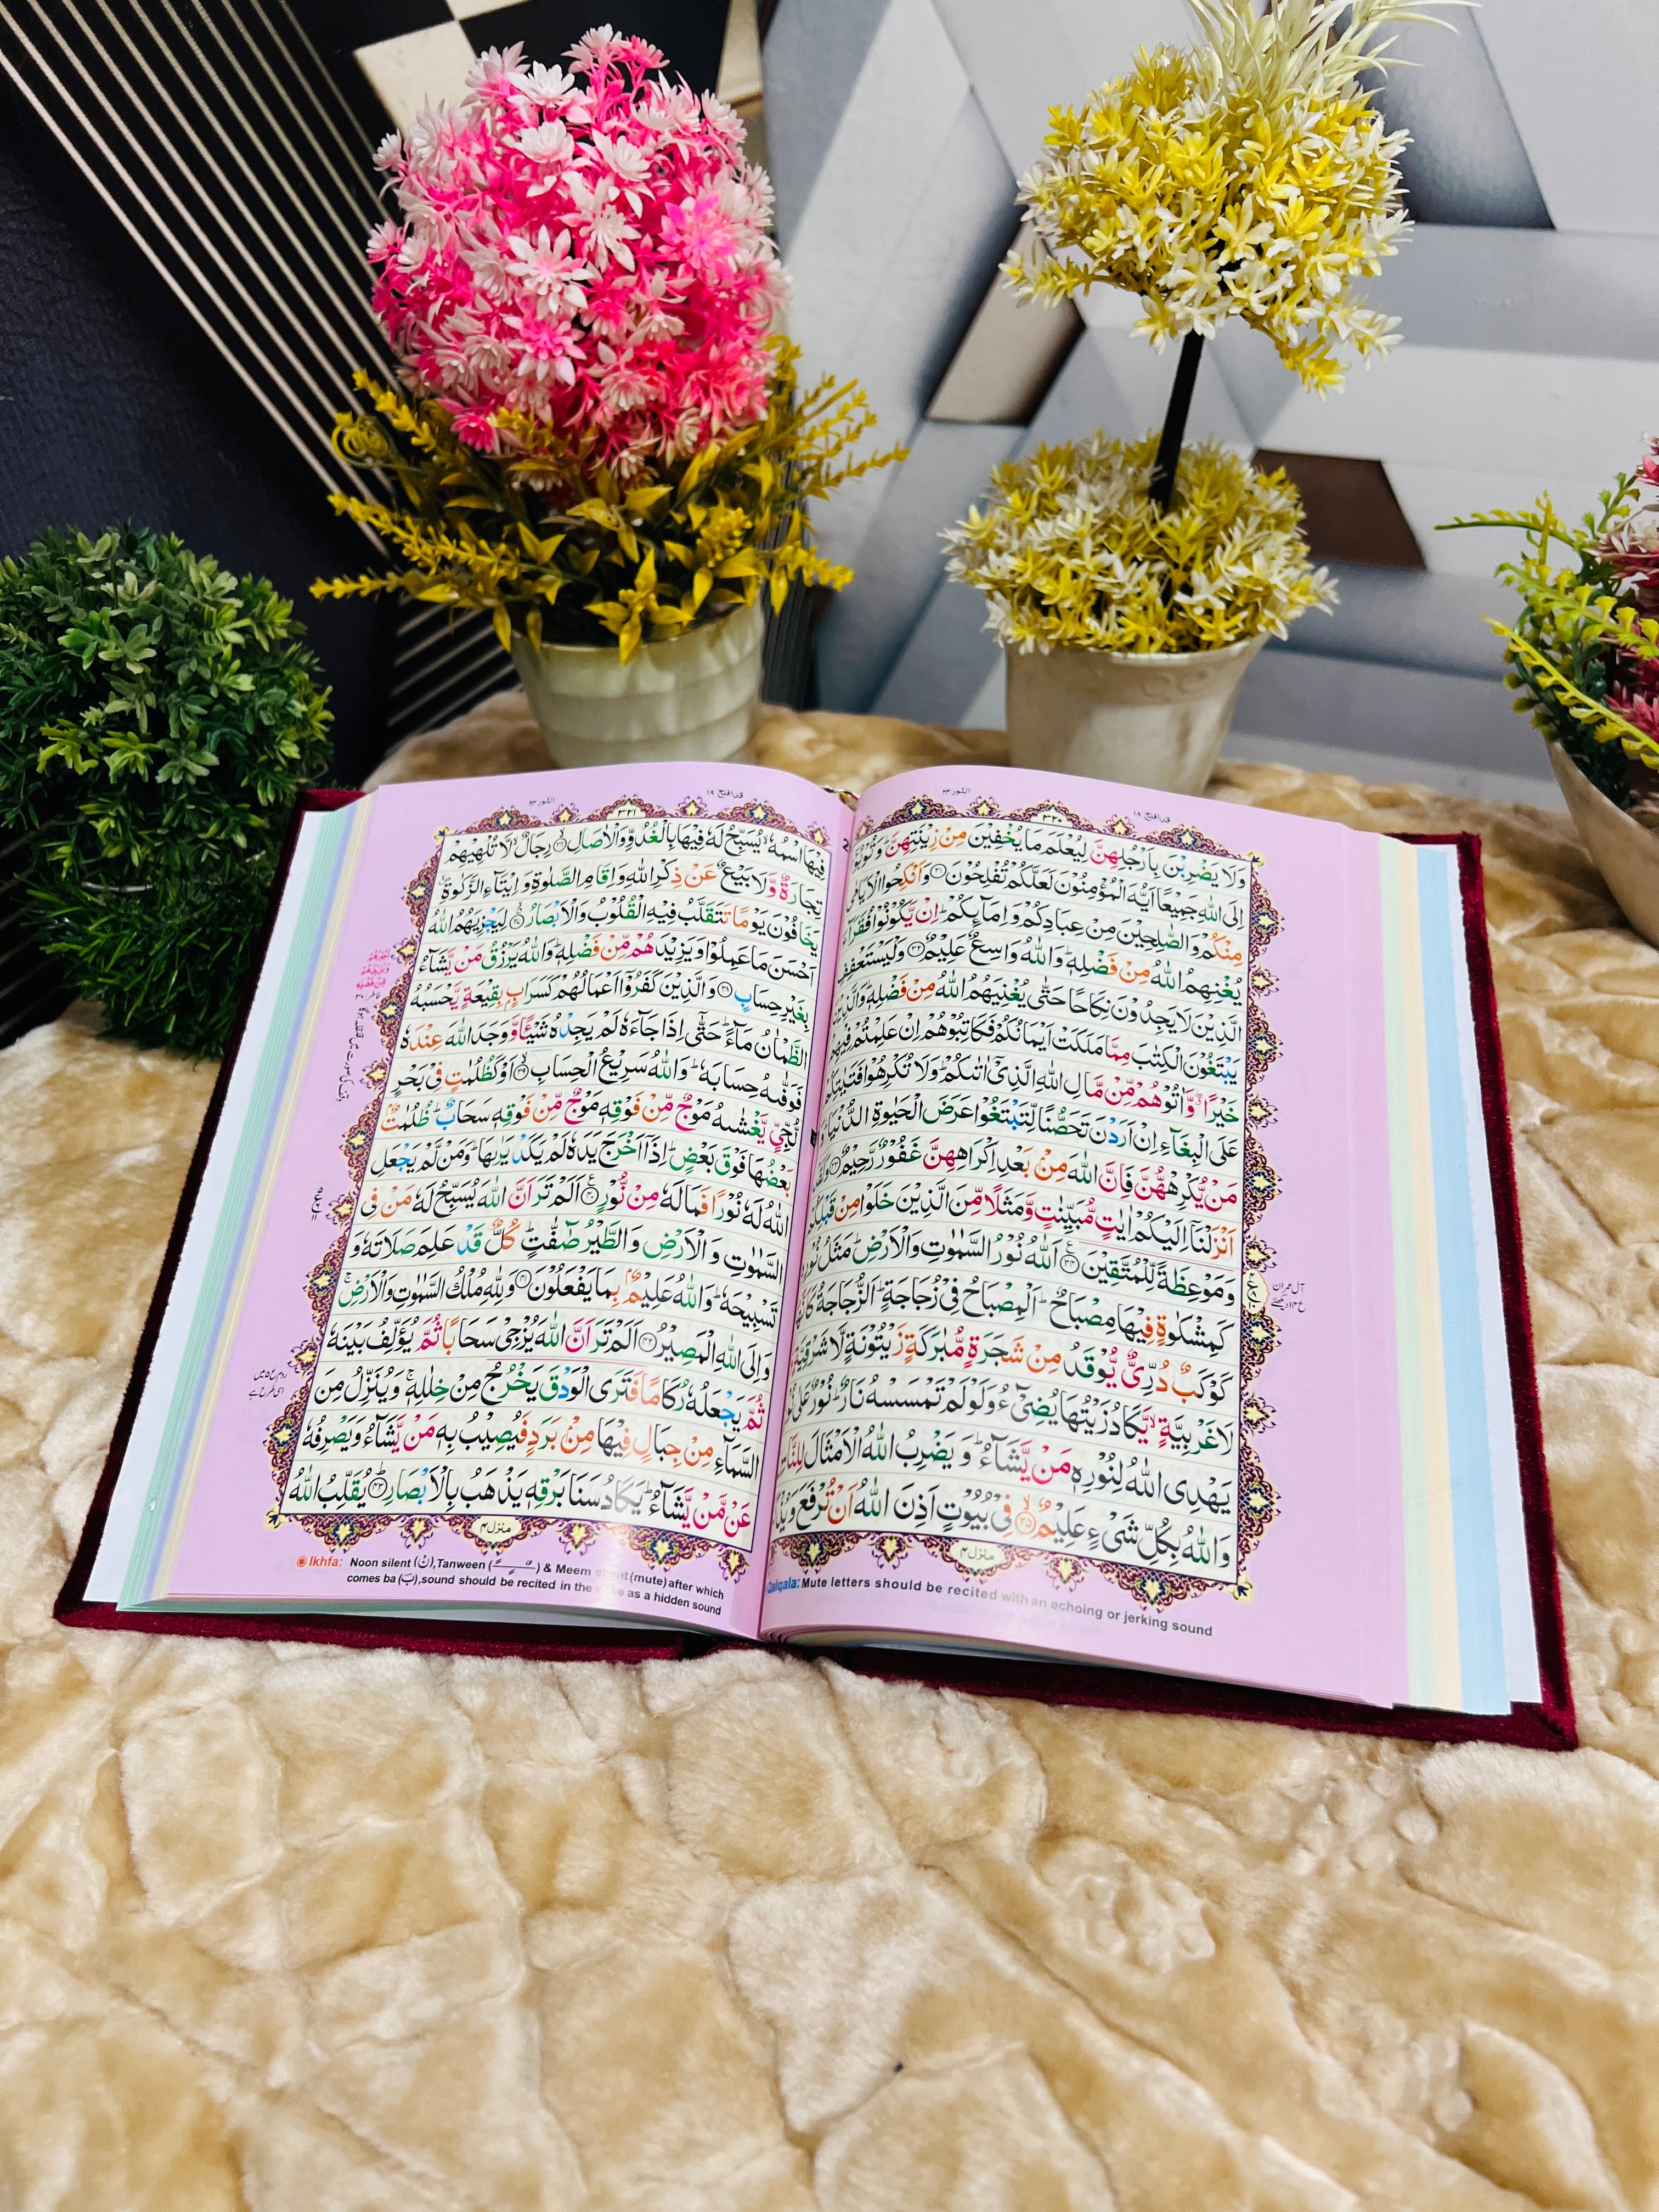 قد افلح ١٨
النور ٢٤
٣٢٠
وَلَا يَضْرِبْنَ بِاَرْجُلِهِنَّ لِيُعْلَمَ مَا يُخْفِيْنَ مِنْ زِيْنَتِهِنَّ ؕ وَتُوْبُوْۤا
اِلَى اللّٰهِ جَمِيْعًا اَيُّهَ الْمُؤْمِنُوْنَ لَعَلَّكُمْ تُفْلِحُوْنَ ﴿٣١﴾ وَاَنْكِحُوا الْاَيَامٰى
مِنْكُمْ وَالصّٰلِحِيْنَ مِنْ عِبَادِكُمْ وَاِمَآئِكُمْ ؕ اِنْ يَّكُوْنُوْا فُقَرَآءَ
يُغْنِهِمُ اللّٰهُ مِنْ فَضْلِهٖ ؕ وَاللّٰهُ وَاسِعٌ عَلِيْمٌ ﴿٣٢﴾ وَلْيَسْتَعْفِفِ
الَّذِيْنَ لَا يَجِدُوْنَ نِكَاحًا حَتّٰى يُغْنِيَهُمُ اللّٰهُ مِنْ فَضْلِهٖ ؕ وَالَّذِيْنَ
يَبْتَغُوْنَ الْكِتٰبَ مِمَّا مَلَكَتْ اَيْمَانُكُمْ فَكَاتِبُوْهُمْ اِنْ عَلِمْتُمْ فِيْهِمْ
خَيْرًا ۖ وَّاٰتُوْهُمْ مِّنْ مَّالِ اللّٰهِ الَّذِيْۤ اٰتٰىكُمْ ؕ وَلَا تُكْرِهُوْا فَتَيٰتِكُمْ
عَلَى الْبِغَآءِ اِنْ اَرَدْنَ تَحَصُّنًا لِّتَبْتَغُوْا عَرَضَ الْحَيٰوةِ الدُّنْيَا ؕ وَ
مَنْ يُّكْرِهْهُّنَّ فَاِنَّ اللّٰهَ مِنْۢ بَعْدِ اِكْرَاهِهِنَّ غَفُوْرٌ رَّحِيْمٌ ﴿٣٣﴾ وَلَقَدْ
اَنْزَلْنَاۤ اِلَيْكُمْ اٰيٰتٍ مُّبَيِّنٰتٍ وَّمَثَلًا مِّنَ الَّذِيْنَ خَلَوْا مِنْ قَبْلِكُمْ
وَمَوْعِظَةً لِّلْمُتَّقِيْنَ ﴿٣٤﴾ اَللّٰهُ نُوْرُ السَّمٰوٰتِ وَالْاَرْضِ ؕ مَثَلُ نُوْرِهٖ
كَمِشْكٰوةٍ فِيْهَا مِصْبَاحٌ ؕ اَلْمِصْبَاحُ فِيْ زُجَاجَةٍ ؕ اَلزُّجَاجَةُ كَاَنَّهَا
كَوْكَبٌ دُرِّيٌّ يُّوْقَدُ مِنْ شَجَرَةٍ مُّبٰرَكَةٍ زَيْتُوْنَةٍ لَّا شَرْقِيَّةٍ وَّ
لَا غَرْبِيَّةٍ ۙ يَّكَادُ زَيْتُهَا يُضِيْٓءُ وَلَوْ لَمْ تَمْسَسْهُ نَارٌ ؕ نُوْرٌ عَلٰى نُوْرٍ ؕ
يَهْدِى اللّٰهُ لِنُوْرِهٖ مَنْ يَّشَآءُ ؕ وَيَضْرِبُ اللّٰهُ الْاَمْثَالَ لِلنَّاسِ ؕ
وَاللّٰهُ بِكُلِّ شَيْءٍ عَلِيْمٌ ﴿٣٥﴾ فِيْ بُيُوْتٍ اَذِنَ اللّٰهُ اَنْ تُرْفَعَ وَيُذْكَرَ
منزل ٤
Qalqala: Mute letters should be recited with an echoing or jerking sound
قد افلح ١٨
النور ٢٤
٣٢١
فِيْهَا اسْمُهٗ ۙ يُسَبِّحُ لَهٗ فِيْهَا بِالْغُدُوِّ وَالْاٰصَالِ ﴿٣٦﴾ رِجَالٌ ۙ لَّا تُلْهِيْهِمْ
تِجَارَةٌ وَّلَا بَيْعٌ عَنْ ذِكْرِ اللّٰهِ وَاِقَامِ الصَّلٰوةِ وَاِيْتَآءِ الزَّكٰوةِ ۙ
يَخَافُوْنَ يَوْمًا تَتَقَلَّبُ فِيْهِ الْقُلُوْبُ وَالْاَبْصَارُ ﴿٣٧﴾ لِيَجْزِيَهُمُ اللّٰهُ
اَحْسَنَ مَا عَمِلُوْا وَيَزِيْدَهُمْ مِّنْ فَضْلِهٖ ؕ وَاللّٰهُ يَرْزُقُ مَنْ يَّشَآءُ
بِغَيْرِ حِسَابٍ ﴿٣٨﴾ وَالَّذِيْنَ كَفَرُوْۤا اَعْمَالُهُمْ كَسَرَابٍۢ بِقِيْعَةٍ يَّحْسَبُهُ
الظَّمْاٰنُ مَآءً ؕ حَتّٰۤى اِذَا جَآءَهٗ لَمْ يَجِدْهُ شَيْـًٔا وَّوَجَدَ اللّٰهَ عِنْدَهٗ
فَوَفّٰىهُ حِسَابَهٗ ؕ وَاللّٰهُ سَرِيْعُ الْحِسَابِ ﴿٣٩﴾ اَوْ كَظُلُمٰتٍ فِيْ بَحْرٍ
لُّجِّيٍّ يَّغْشٰىهُ مَوْجٌ مِّنْ فَوْقِهٖ مَوْجٌ مِّنْ فَوْقِهٖ سَحَابٌ ؕ ظُلُمٰتٌۢ
بَعْضُهَا فَوْقَ بَعْضٍ ؕ اِذَاۤ اَخْرَجَ يَدَهٗ لَمْ يَكَدْ يَرٰىهَا ؕ وَمَنْ لَّمْ يَجْعَلِ
اللّٰهُ لَهٗ نُوْرًا فَمَا لَهٗ مِنْ نُّوْرٍ ﴿٤٠﴾ اَلَمْ تَرَ اَنَّ اللّٰهَ يُسَبِّحُ لَهٗ مَنْ فِي
السَّمٰوٰتِ وَالْاَرْضِ وَالطَّيْرُ صٰٓفّٰتٍ ؕ كُلٌّ قَدْ عَلِمَ صَلَاتَهٗ وَ
تَسْبِيْحَهٗ ؕ وَاللّٰهُ عَلِيْمٌۢ بِمَا يَفْعَلُوْنَ ﴿٤١﴾ وَلِلّٰهِ مُلْكُ السَّمٰوٰتِ وَالْاَرْضِ ۚ
وَاِلَى اللّٰهِ الْمَصِيْرُ ﴿٤٢﴾ اَلَمْ تَرَ اَنَّ اللّٰهَ يُزْجِيْ سَحَابًا ثُمَّ يُؤَلِّفُ بَيْنَهٗ
ثُمَّ يَجْعَلُهٗ رُكَامًا فَتَرَى الْوَدْقَ يَخْرُجُ مِنْ خِلٰلِهٖ ۚ وَيُنَزِّلُ مِنَ
السَّمَآءِ مِنْ جِبَالٍ فِيْهَا مِنْۢ بَرَدٍ فَيُصِيْبُ بِهٖ مَنْ يَّشَآءُ وَيَصْرِفُهٗ
عَنْ مَّنْ يَّشَآءُ ؕ يَكَادُ سَنَا بَرْقِهٖ يَذْهَبُ بِالْاَبْصَارِ ﴿٤٣﴾ يُقَلِّبُ اللّٰهُ
منزل ٤
Ikhfa: Noon silent (نْ), Tanween ( ) & Meem silent (mute) after which
comes ba (ب), sound should be recited in the as a hidden sound